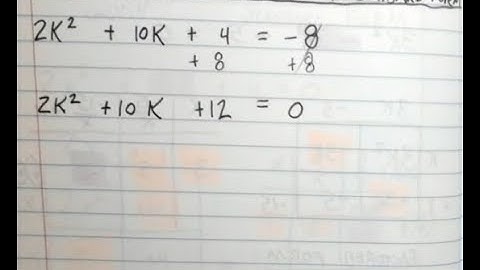 2K² + 10K + 4 = -8
+ 8 +8
2K² + 10 K + 12 = 0